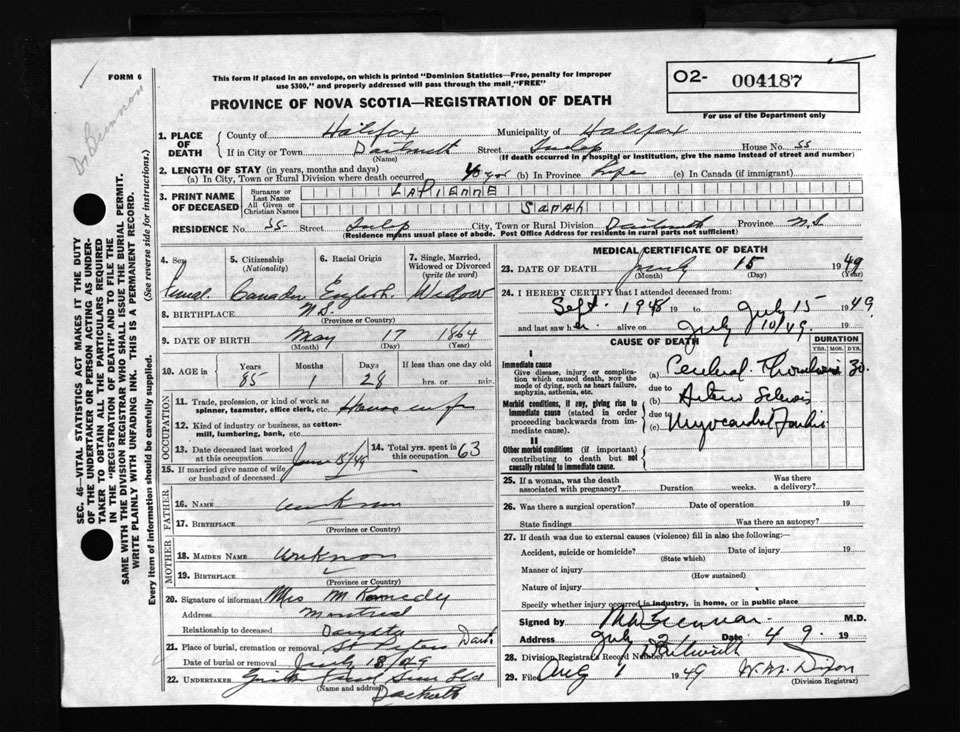 FORM 6
Dr Brennan
This form if placed in an envelope, on which is printed "Dominion Statistics—Free, penalty for improper
use $300," and properly addressed will pass through the mail, "FREE"
PROVINCE OF NOVA SCOTIA—REGISTRATION OF DEATH
O2- 004187
For use of the Department only
SEC. 46—VITAL STATISTICS ACT MAKES IT THE DUTY
OF THE UNDERTAKER OR PERSON ACTING AS UNDER-
TAKER TO OBTAIN ALL THE PARTICULARS REQUIRED
IN THE "REGISTRATION OF DEATH" AND TO FILE THE
SAME WITH THE DIVISION REGISTRAR WHO SHALL ISSUE THE BURIAL PERMIT.
WRITE PLAINLY WITH UNFADING INK. THIS IS A PERMANENT RECORD.
Every item of information should be carefully supplied. (See reverse side for instructions.)
1. PLACE OF DEATH County of Halifax Municipality of Halifax
If in City or Town Dartmouth Street Tulip House No. 55
(Name) (If death occurred in a hospital or institution, give the name instead of street and number)
2. LENGTH OF STAY (in years, months and days)
(a) In City, Town or Rural Division where death occurred 40 yrs (b) In Province Life (c) In Canada (if immigrant)
3. PRINT NAME OF DECEASED Surname or Last Name LAPIERRE
All Given or Christian Names SARAH
RESIDENCE No. 55 Street Tulip City, Town or Rural Division Dartmouth Province N.S.
(Residence means usual place of abode. Post Office Address for residents in rural parts not sufficient)
4. Sex 5. Citizenship (Nationality) 6. Racial Origin 7. Single, Married, Widowed or Divorced (write the word)
Female Canadian English Widow
8. BIRTHPLACE N.S.
(Province or Country)
9. DATE OF BIRTH May 17 1864
(Month) (Day) (Year)
10. AGE in Years Months Days If less than one day old
85 1 28 hrs. or min.
OCCUPATION
11. Trade, profession, or kind of work as
spinner, teamster, office clerk, etc. Housewife
12. Kind of industry or business, as cotton-
mill, lumbering, bank, etc.
13. Date deceased last worked at this occupation June 15/49 14. Total yrs. spent in this occupation 63
15. If married give name of wife
or husband of deceased
FATHER
16. NAME unknown
17. BIRTHPLACE
(Province or Country)
MOTHER
18. MAIDEN NAME unknown
19. BIRTHPLACE
(Province or Country)
20. Signature of informant Mrs M Kennedy
Address Montreal
Relationship to deceased Daughter
21. Place of burial, cremation or removal St Peters Dart.
Date of burial or removal July 18/49
22. UNDERTAKER
(Name and address)
Dartmouth
MEDICAL CERTIFICATE OF DEATH
23. DATE OF DEATH July 15 1949
(Month) (Day) (Year)
24. I HEREBY CERTIFY that I attended deceased from:
Sept. 1948 to July 15 1949
and last saw her alive on July 10/49 19
CAUSE OF DEATH DURATION
YRS. MOS. DYS.
I
Immediate cause
Give disease, injury or complica-
tion which caused death, NOT the
mode of dying, such as heart failure,
asphyxia, asthenia, etc.
(a) Cerebral Thrombosis 30.
due to
Morbid conditions, if any, giving rise to
immediate cause (stated in order
proceeding backwards from im-
mediate cause).
(b) Arterio Sclerosis
due to
(c) Myocardial
II
Other morbid conditions (if important)
contributing to death but not
causally related to immediate cause.
25. If a woman, was the death
associated with pregnancy? Duration weeks. Was there a delivery?
26. Was there a surgical operation? Date of operation 19
State findings Was there an autopsy?
27. If death was due to external causes (violence) fill in also the following:—
Accident, suicide or homicide? Date of injury 19
(State which)
Manner of injury
(How sustained)
Nature of injury
Specify whether injury occurred in industry, in home, or in public place
Signed by M D Brennan M.D.
Address Date 4 9. 19
28. Division Registrar's Record Number
Dartmouth
29. Filed Aug 1 1949 W. M. Dixon
(Division Registrar)